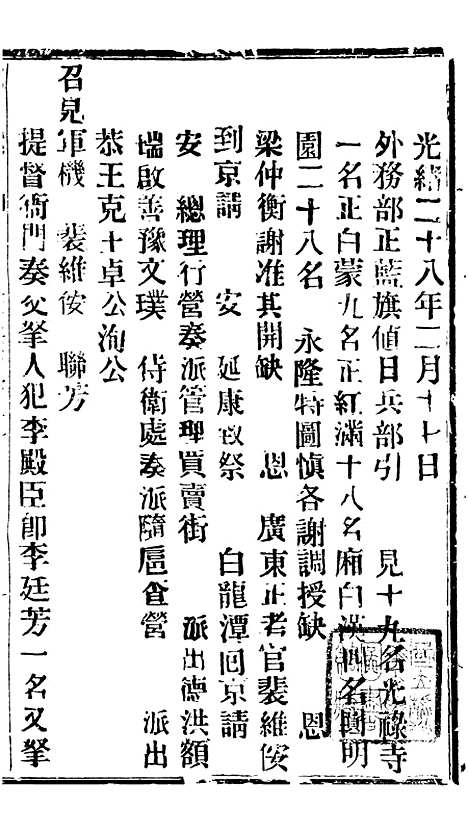 光緒二十八年二月十七日
外務部正藍旗値日兵部引 見十九名光祿寺
一名正白蒙九名正紅滿十八名廂白漢四名圓明
園二十八名 永隆特圖愼各謝調授缺 恩
梁仲衡謝准其開缺 恩 廣東正考官裴維侒
到京請 安 延康致祭 白龍潭回京請
安 總理行營奏派管理買賣街 派出德洪額
瑞啟善豫文璞 侍衛處奏派隨扈查營 派出
恭王克王卓公洵公
召見軍機 裴維侒 聯芳
提督衙門奏交拏人犯李殿臣卽李廷芳一名又拏